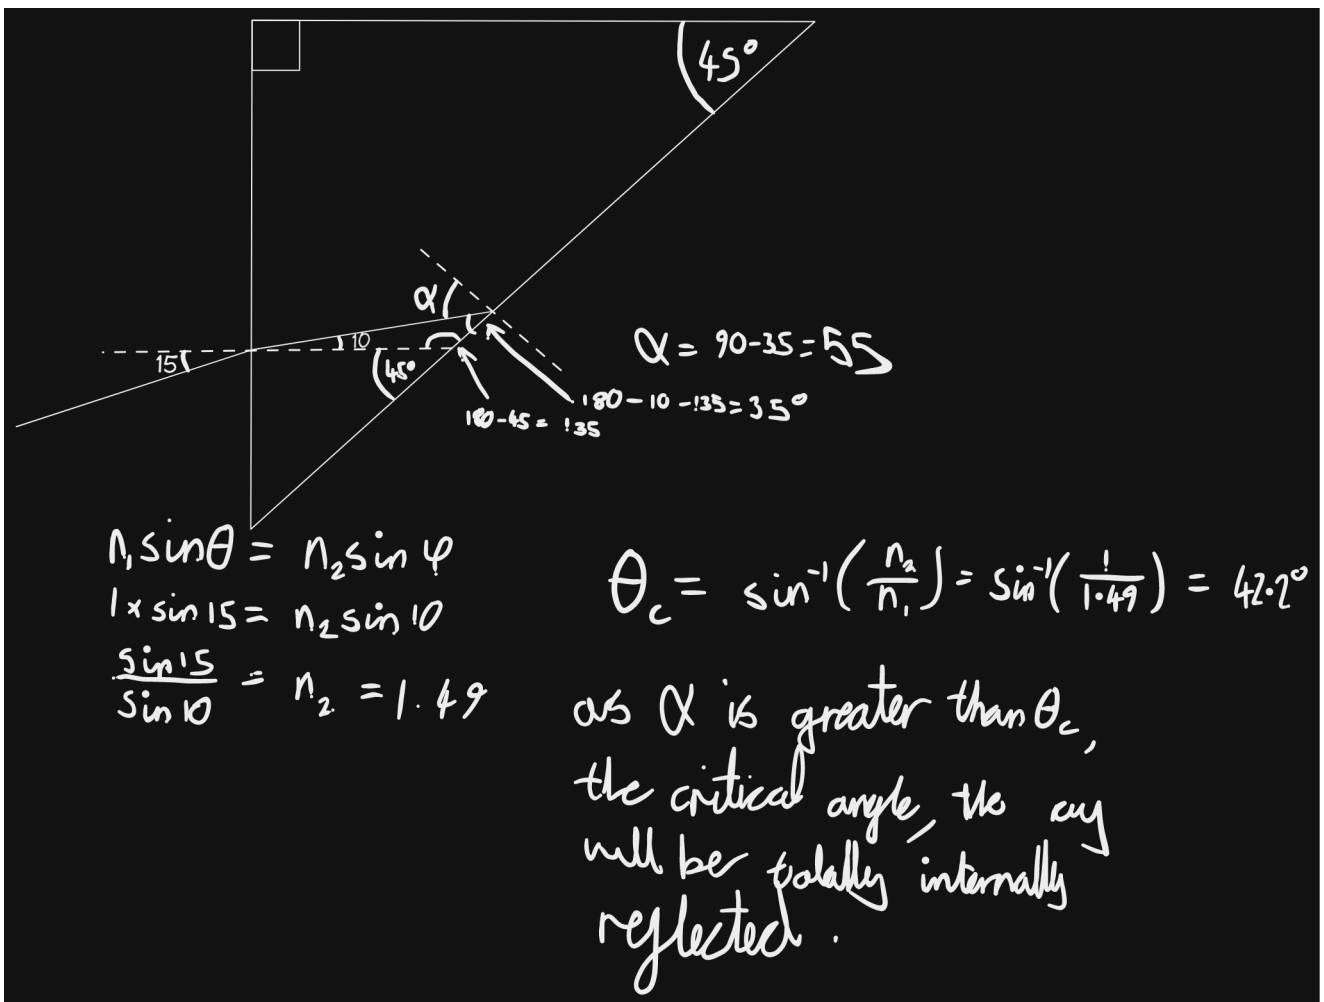 45°
α
10
15
45°
α = 90-35=55
180-10-135=35°
180-45=135
n₁sinθ = n₂sinφ
1×sin15 = n₂sin10
sin15/sin10 = n₂ = 1.49
θc = sin⁻¹(n₂/n₁) = sin⁻¹(1/1.49) = 42.2°
as α is greater than θc,
the critical angle, the ray
will be totally internally
reflected.